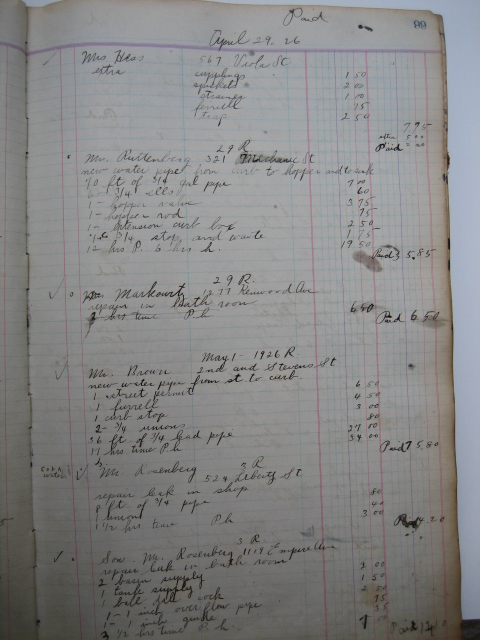 Paid
99
April 29. 26
Mrs Hess 567 Viola St
extra cupplings 1 50
sockets 2 00
strainer 1 00
ferrell 75
trap 2 50
7 95
Paid
29 R
Mr. Ruttenberg 321 Mechanic St
new water pipe from curb to hopper and to sink
70 ft of 3/4 gal pipe 7 00
6 - 3/4 ells 60
1 - hopper valve 3 75
1 - hopper rod 75
1 - extension curb box 2 50
3/4 stop and waste 1 75
12 hrs P. 6 hrs h. 19 50
Paid 35.85
29 R.
Markowitz 1277 Kenwood Ave
repair in bath room
2 hrs time P.h 6 50
Paid 6 50
May 1 - 1926 R
Mr. Brown 2nd and Stevens St
new water pipe from st to curb
1 street permit 6 50
1 furrell 4 50
1 curb stop 3 00
2 - 3/4 unions 80
36 ft of 3/4 lead pipe 27 00
hrs time P.h 34 00
Paid 75.80
3 R
Mr. Rosenberg 524 Liberty St
repair leak in shop
8 ft of 3/4 pipe 80
1 union 40
1 1/2 hrs time P.h 3 00
4 20
3 R
Son Mr. Rosenberg 1119 Empire Ave
repair leak in bath room
2 basin supply 2 00
1 tank supply 1 50
1 ball cock
1 - 1 inch over flow pipe
1 - 1 inch guide 35
3 1/2 hrs time P.h.